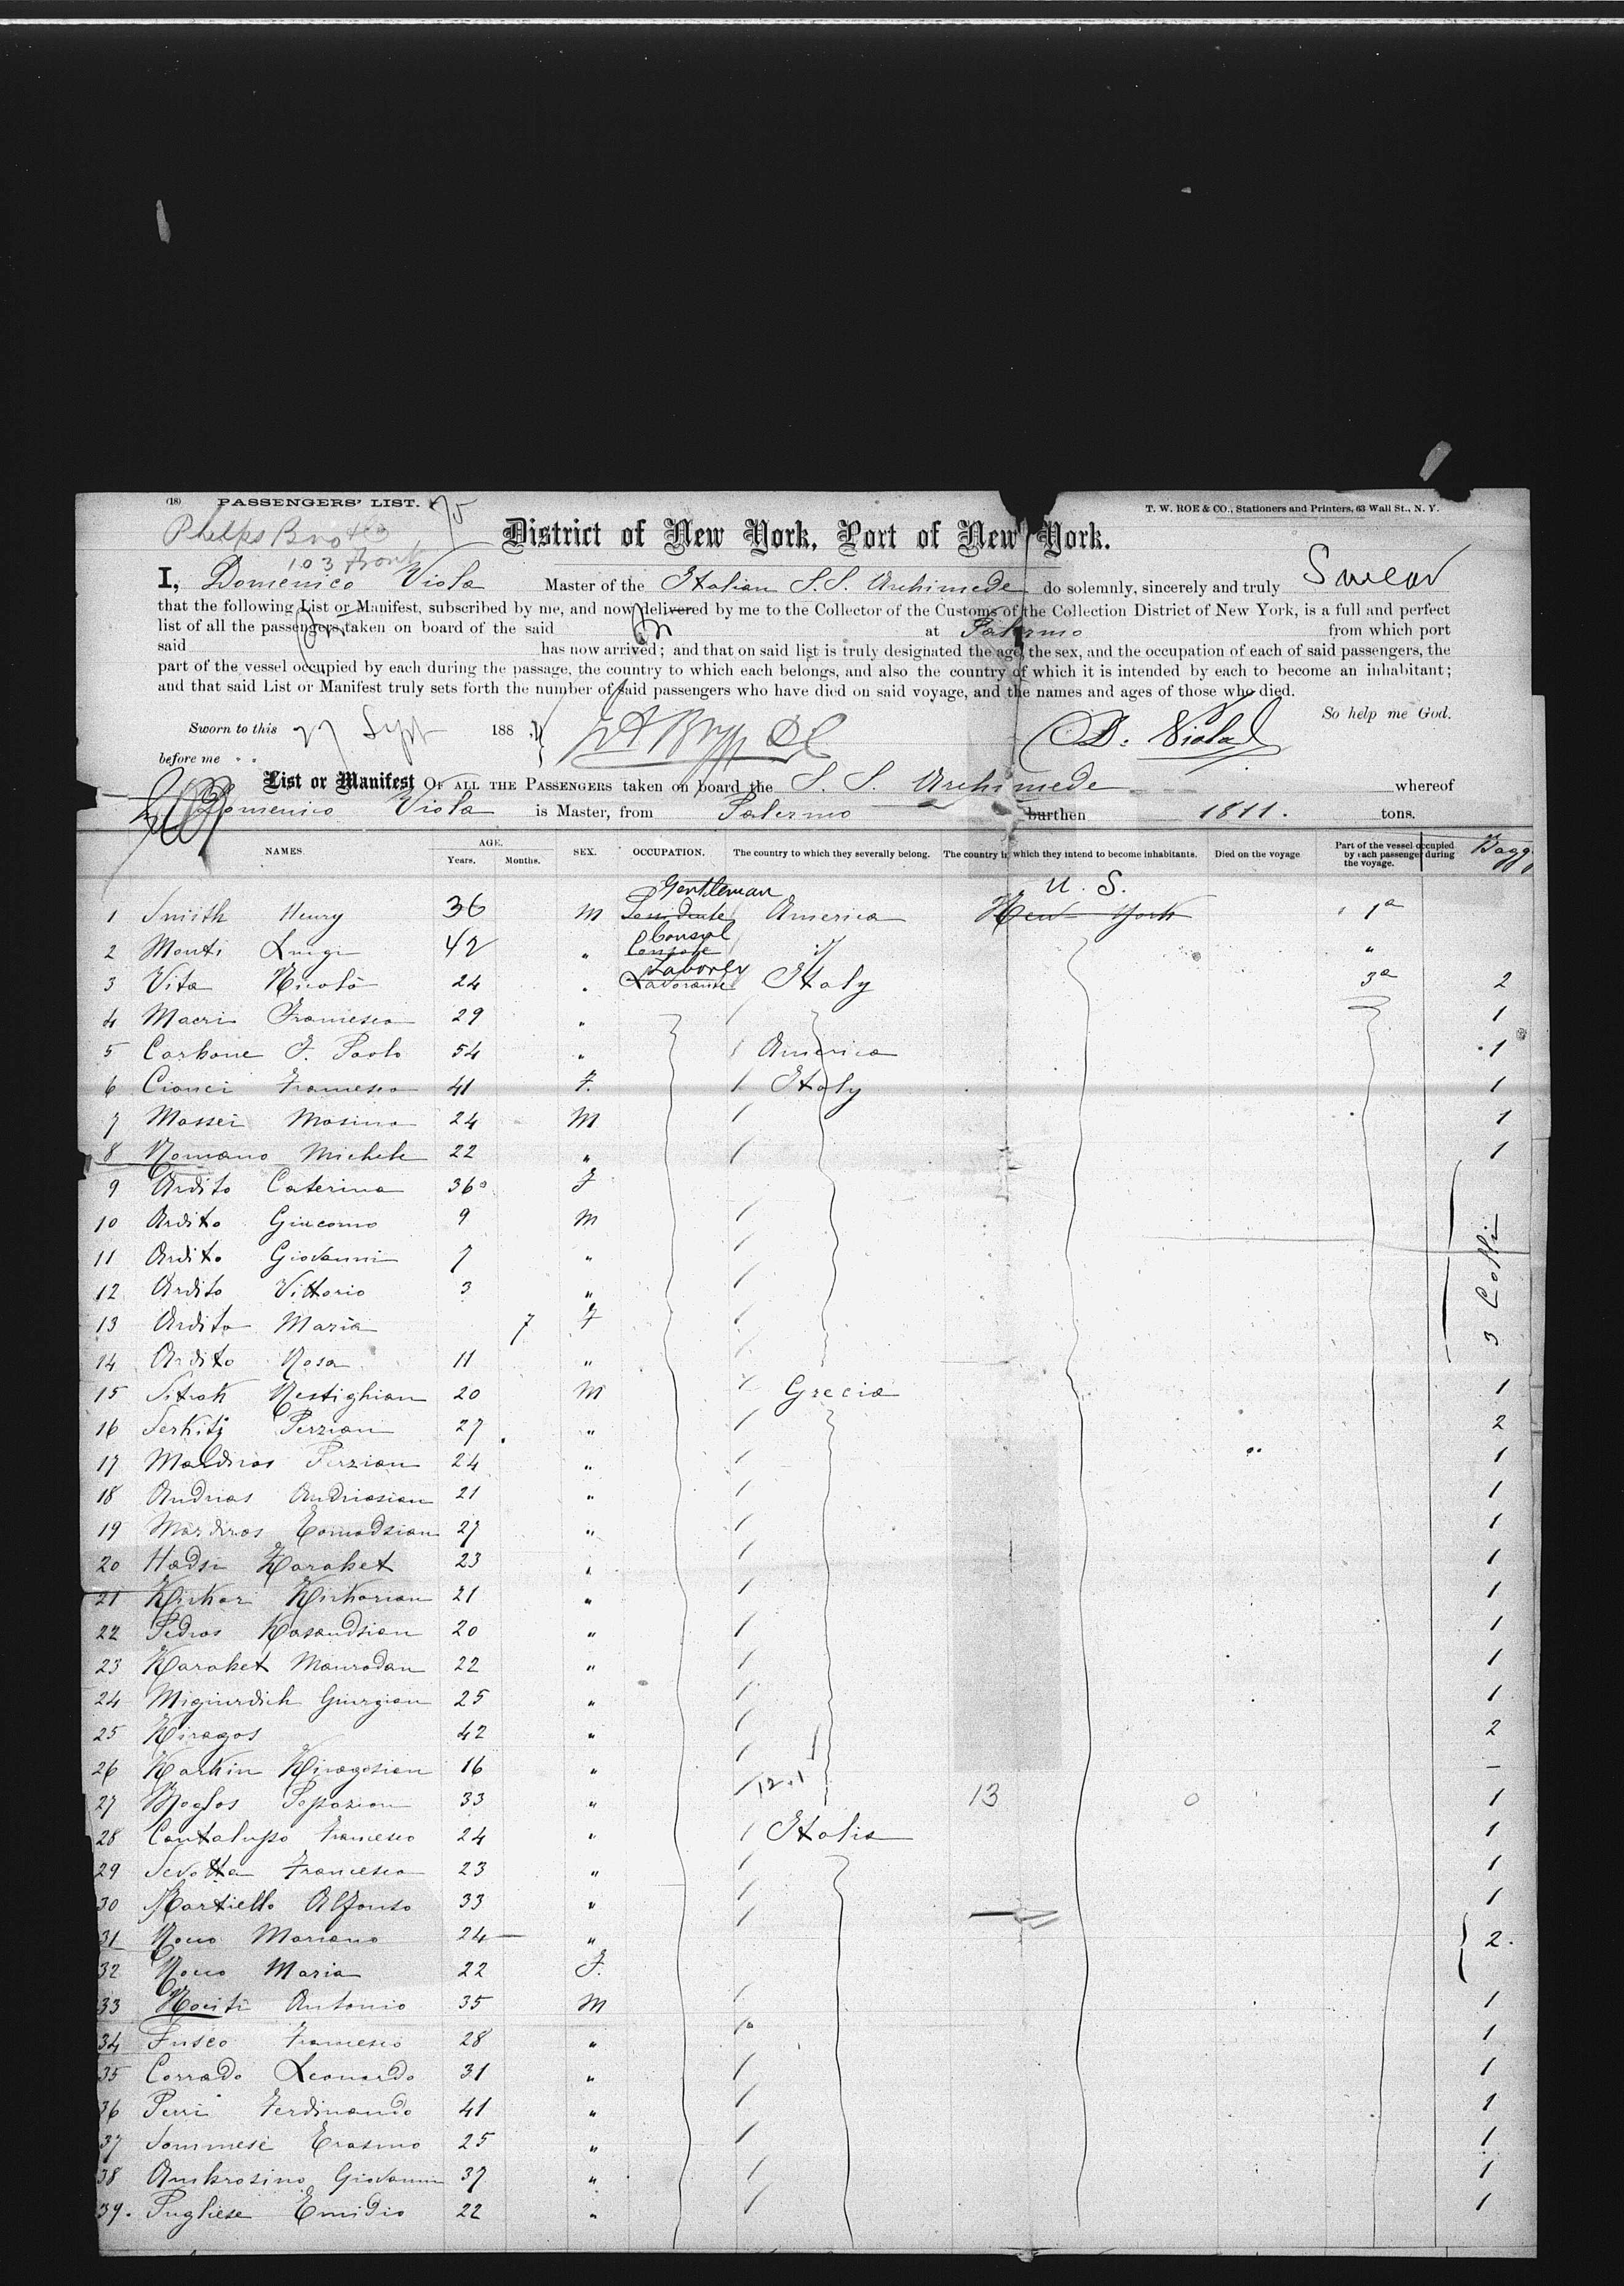 (18) PASSENGERS' LIST. 75
T. W. ROE & CO., Stationers and Printers, 63 Wall St., N. Y.
Phelps Bro
103 Front
District of New York, Port of New York.
I, Domenico Viola Master of the Italian S.S. Archimede do solemnly, sincerely and truly Swear
that the following List or Manifest, subscribed by me, and now delivered by me to the Collector of the Customs of the Collection District of New York, is a full and perfect
list of all the passengers taken on board of the said at Palermo from which port
said has now arrived; and that on said list is truly designated the age, the sex, and the occupation of each of said passengers, the
part of the vessel occupied by each during the passage, the country to which each belongs, and also the country of which it is intended by each to become an inhabitant;
and that said List or Manifest truly sets forth the number of said passengers who have died on said voyage, and the names and ages of those who died.
So help me God.
Sworn to this 27 Sept 188 D. Viola
before me
List or Manifest OF ALL THE PASSENGERS taken on board the S. S. Archimede whereof
Domenico Viola is Master, from Palermo burthen 1811. tons.
NAMES. AGE. Years. Months. SEX. OCCUPATION. The country to which they severally belong. The country in which they intend to become inhabitants. Died on the voyage Part of the vessel occupied by each passenger during the voyage. Bagg.
Gentleman U. S.
1 Smith Henry 36 M America New York 1a
Consul
2 Monti Luigi 42 " "
Laborer
3 Vita Nicolò 24 " Lavorante Italy 3a 2
4 Macri Francesco 29 " 1
5 Carbone F. Paolo 54 " America 1
6 Cianci Francesca 41 F. Italy 1
7 Massei Masino 24 M 1
8 Romano Michele 22 " 1
9 Ardito Caterina 36 F
10 Ardito Giacomo 9 M
11 Ardito Giovanni 7 "
12 Ardito Vittorio 3 "
13 Ardito Maria 7 F
14 Ardito Rosa 11 "
3 Colli
15 Sitrak Restighian 20 M Grecia 1
16 Serkitz Perzian 27 " 2
17 Maldiros Perzian 24 " 1
18 Andrias Andriasian 21 " 1
19 Mardiros Eomadsian 27 " 1
20 Hadsi Karabet 23 " 1
21 Kirkor Kirkorian 21 " 1
22 Pedros Kasandsian 20 " 1
23 Karabet Mouradan 22 " 1
24 Migiurdich Giurgian 25 " 1
25 Kiragos 42 " 2
26 Karkin Kiragosian 16 " –
27 Boglos Papazian 33 " 13 1
28 Cantalupo Francesco 24 " Italia 1
29 Scvotta Francesco 23 " 1
30 Martiello Alfonso 33 " 1
31 Rocco Mariano 24 " 2.
32 Rocco Maria 22 F.
33 Rociti Antonio 35 M 1
34 Fusco Francesco 28 " 1
35 Corrado Leonardo 31 " 1
36 Perri Ferdinando 41 " 1
37 Sommese Erasmo 25 " 1
38 Ambrosino Giovanni 37 " 1
39. Pugliese Emidio 22 " 1